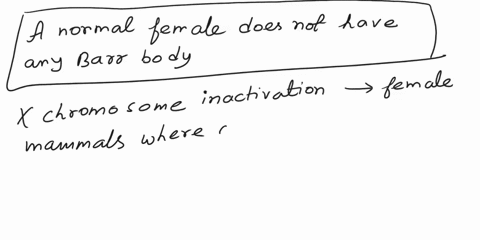 A normal female does not have
any Barr body
X chromosome inactivation → female
mammals where